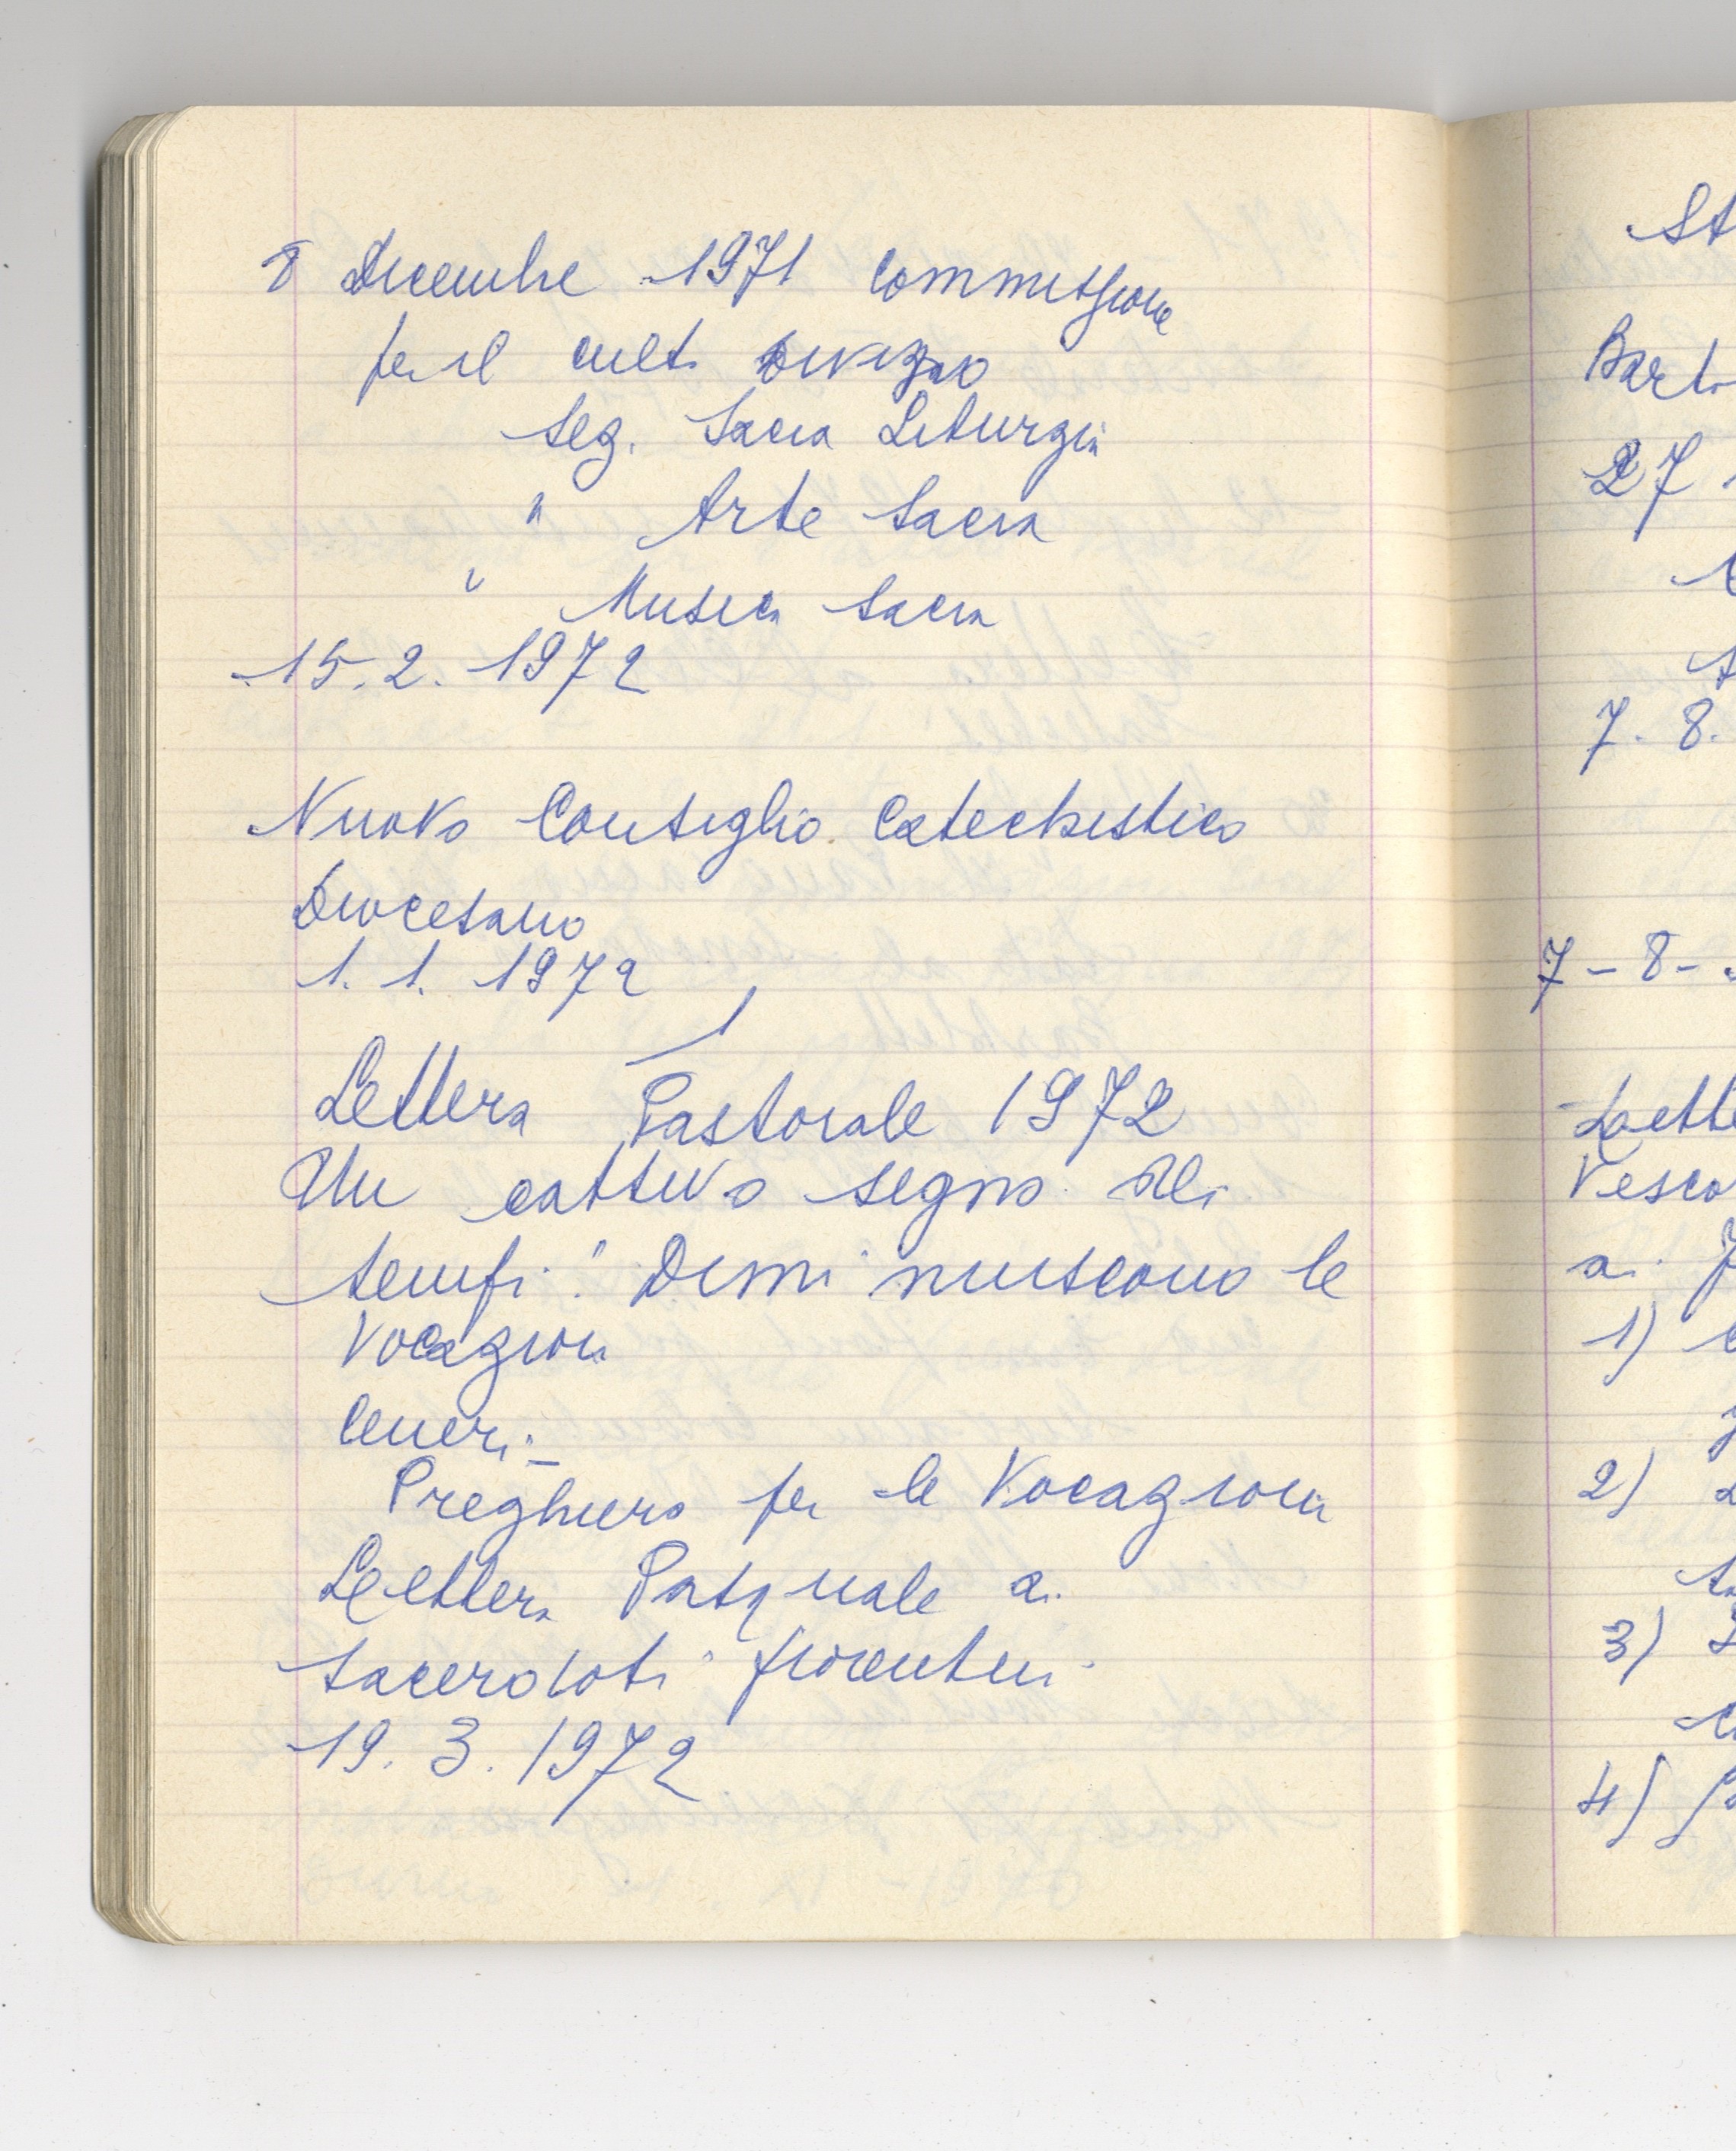 8 Dicembre 1971 Commissione
per il culto divino
Seg. Sacra Liturgia
" Arte Sacra
" Musica Sacra
15.2.1972
Nuovo Consiglio Catechistico
Diocesano
1.1.1972
Lettera Pastorale 1972
Un cattivo segno dei
tempi: Diminuiscono le
vocazioni
Ceneri -
Preghiera per le Vocazioni
Lettera Pasquale ai
Sacerdoti fiorentini
19.3.1972
St
Bart
27
7. 8.
7-8-
Lette
Vesco
ai
1)
2)
3)
4)